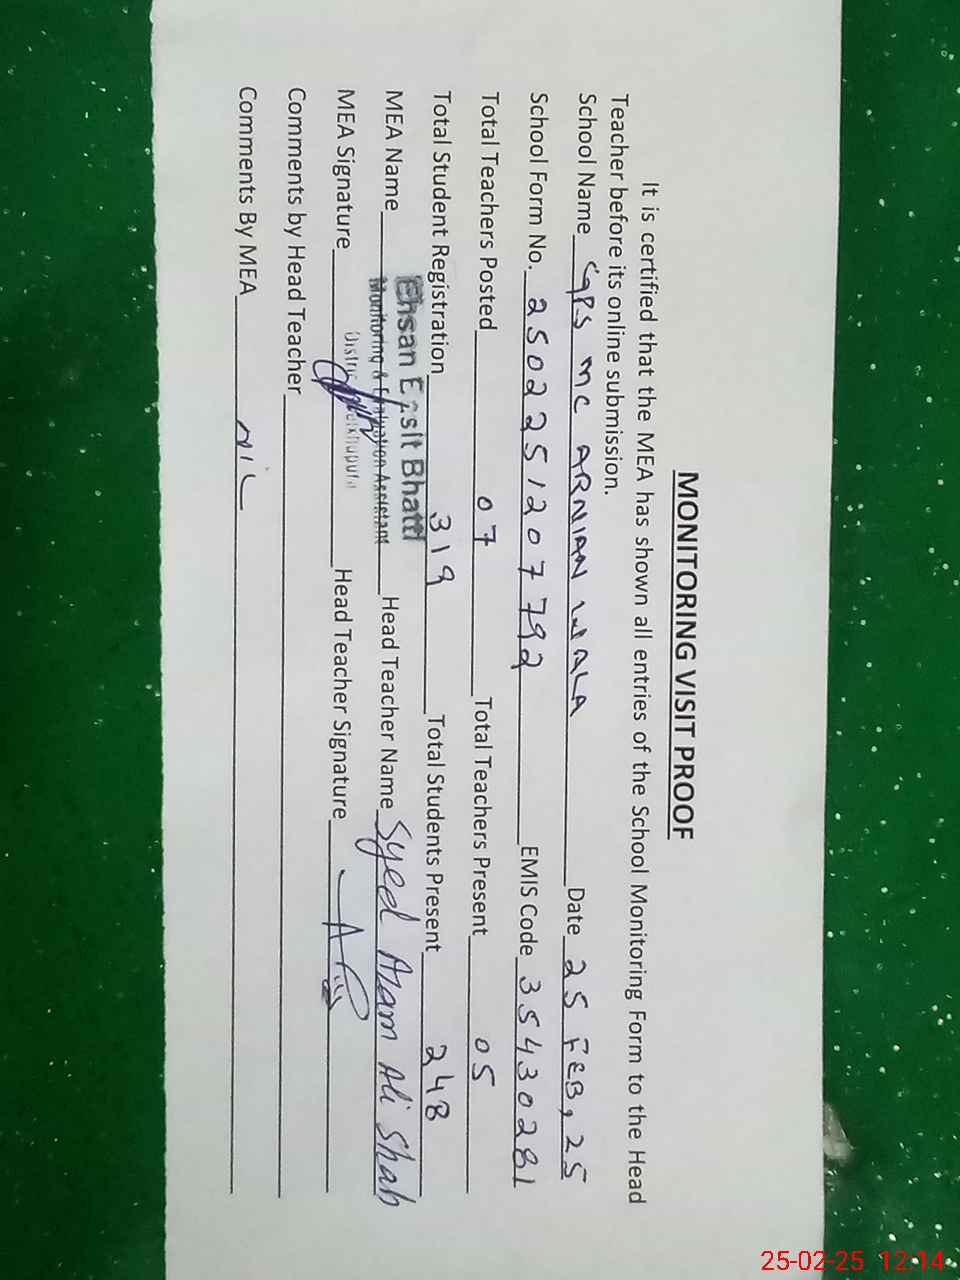 MONITORING VISIT PROOF
It is certified that the MEA has shown all entries of the School Monitoring Form to the Head
Teacher before its online submission.
School Name GPS MC ARNIAN WALA Date 25 FEB, 25
School Form No. 2502251207792 EMIS Code 35430281
Total Teachers Posted 07 Total Teachers Present 05
Total Student Registration 319 Total Students Present 248
Ehsan Bhatti
MEA Name Monitoring & Evaluation Assistant Head Teacher Name Syed Azam Ali Shah
MEA Signature Head Teacher Signature
Comments by Head Teacher
Comments By MEA NIL
25-02-25 12:14